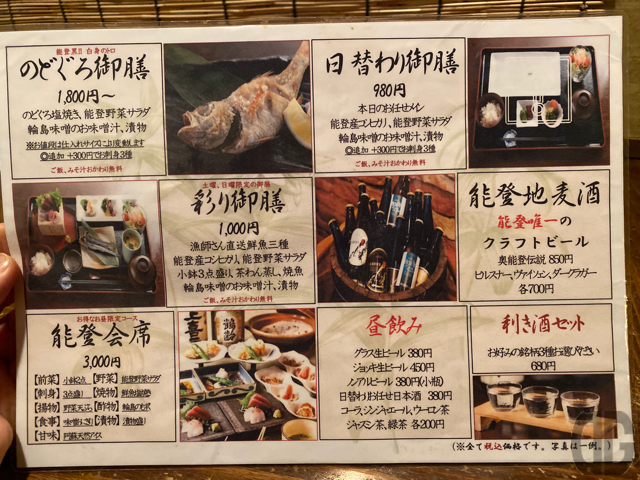 能登黒!! 白身のトロ
のどぐろ御膳
1,800円〜
のどぐろ塩焼き、能登野菜サラダ
輪島味噌のお味噌汁、漬物
※お値段は仕入れサイズにより変動します
◎追加 +300円でお刺身3種
ご飯、みそ汁おかわり無料
日替わり御膳
980円
本日のお任せメイン
能登産コシヒカリ、能登野菜サラダ
輪島味噌のお味噌汁、漬物
◎追加 +300円でお刺身3種
ご飯、みそ汁おかわり無料
土曜、日曜限定の御膳
彩り御膳
1,000円
漁師さん直送鮮魚三種
能登産コシヒカリ、能登野菜サラダ
小鉢3点盛り、茶わん蒸し、焼魚
輪島味噌のお味噌汁、漬物
ご飯、みそ汁おかわり無料
能登地麦酒
能登唯一の
クラフトビール
奥能登伝説 850円
ピルスナー、ヴァイツェン、ダークラガー
各700円
お得なお昼限定コース
能登会席
3,000円
【前菜】小鉢2点 【野菜】能登野菜サラダ
【刺身】3点盛り 【焼物】
【揚物】野菜天ぷら 【酢物】
【食事】味噌にぎり 【漬物】漬物盛り
【甘味】天然アイス
昼飲み
グラス生ビール 380円
ジョッキ生ビール 450円
ノンアルビール 380円(小瓶)
日替わりお任せ日本酒 380円
コーラ、ジンジャエール、ウーロン茶
ジャスミン茶、緑茶 各200円
利き酒セット
お好みの銘柄3種お選びください
680円
(※全て税込価格です。写真は一例。)